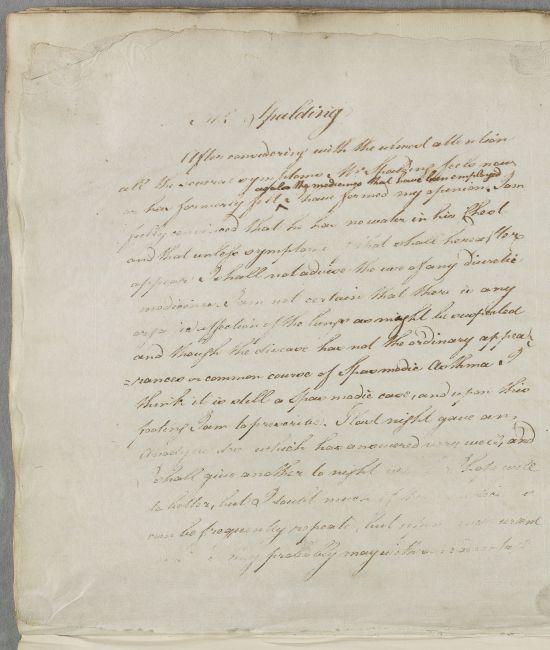 Mr Spalding
After considering with the utmost attention
all the several symptoms Mr Spalding feels now
or has formerly felt, I have formed my opinion. I am
again the medicines that have been employed
fully convinced that he has no water in his Chest
and that unless symptoms of that shall hereafter
appear I shall not advise the use of any diuretic
medicines. I am not certain that there is any
affection of the lungs as might be suspected
and though the disease has not the ordinary appea
=rances or common course of Spasmodic Asthma I
think it is still a Spasmodic case, and upon this
footing I am to prescribe. I last night gave an
Anodyne which has answered very well, and
I shall give another to night
to better, but I doubt much if
can be frequently repeated, but
may probably may